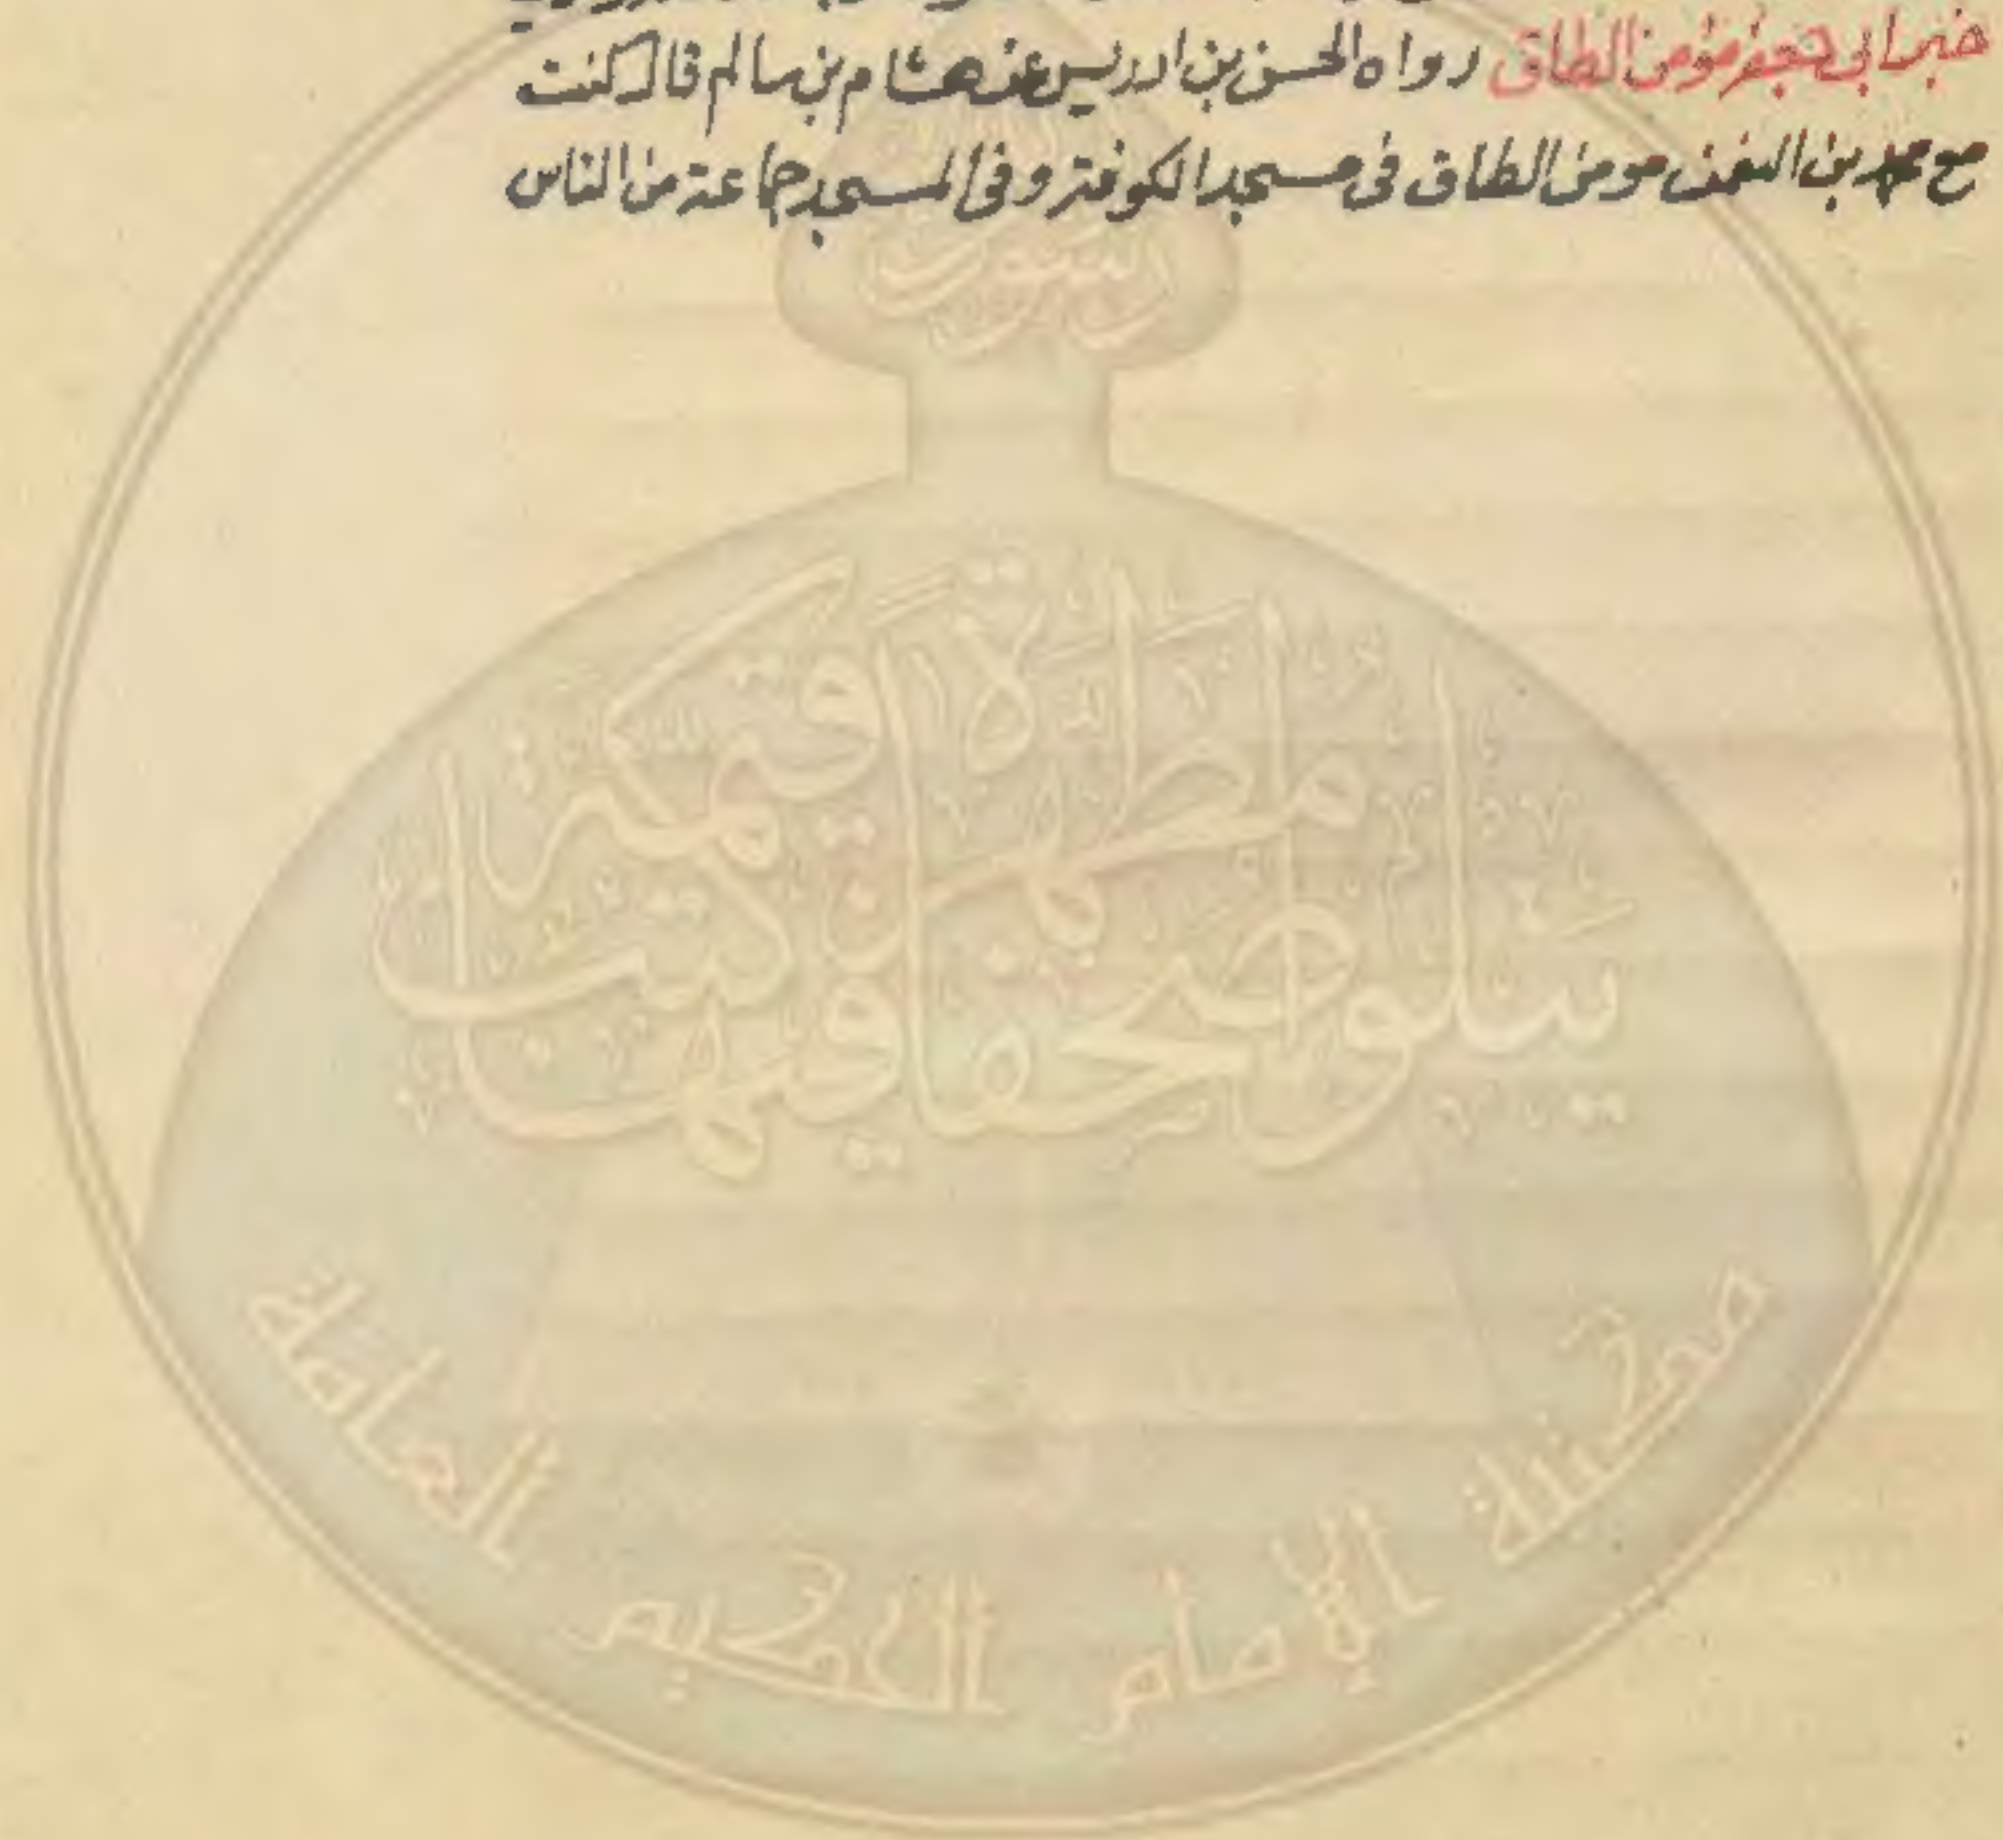 خبر ابي جعفر مؤمن الطاق رواه الحسن بن ادريس عن هشام بن سالم قال كنت
مع محمد بن النعمن مومن الطاق في مسجد الكوفة وفي المسجد جماعة من الناس
رسول
يتلو صحفا مطهرة فيها كتب قيمة
مكتبة الإمام الحكيم العامة